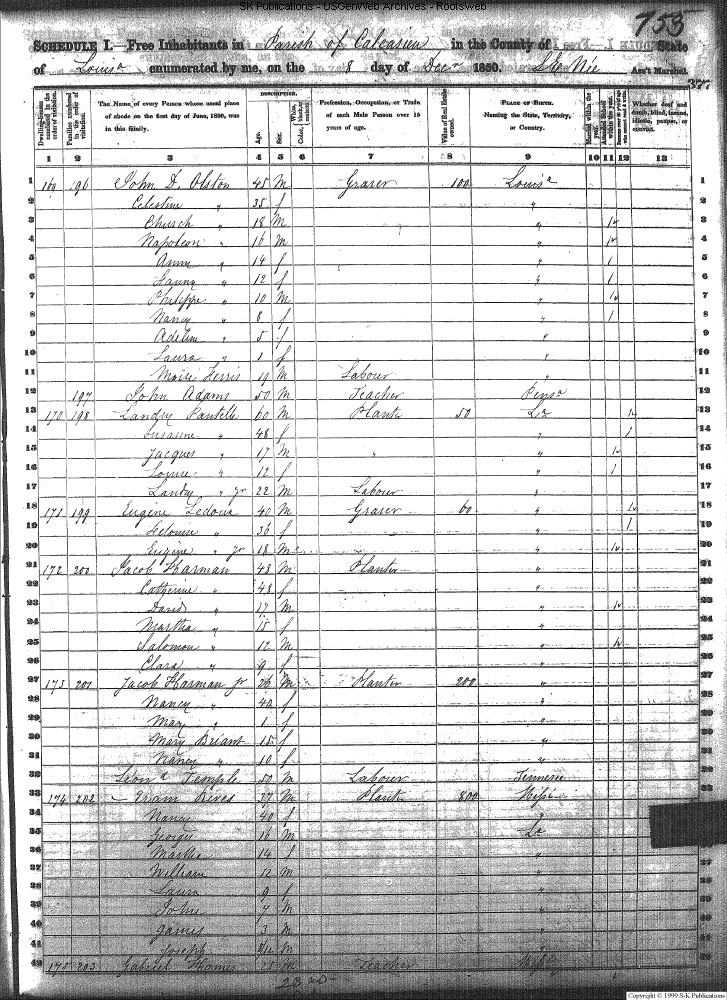 SK Publications - USGenWeb Archives - Rootsweb
753
SCHEDULE I.—Free Inhabitants in Parish of Calcasieu in the County of State
of Louisa enumerated by me, on the 8 day of Decr 1850. Ass't Marshal.
DESCRIPTION.
Dwelling-houses numbered in the order of visitation. Families numbered in the order of visitation. The Name of every Person whose usual place of abode on the first day of June, 1850, was in this family. Age. Sex. White, black, or mulatto. Color, Profession, Occupation, or Trade of each Male Person over 15 years of age. Value of Real Estate owned. PLACE OF BIRTH. Naming the State, Territory, or Country. Married within the year. Attended School within the year. Whether deaf and dumb, blind, insane, idiotic, pauper, or convict.
1 2 3 4 5 6 7 8 9 10 11 12 13
1 169 196 John D. Olston 45 M Graser 100 Louisa 1
2 Celestine " 35 f " 2
3 Church " 18 M " 1 3
4 Napoleon " 16 M " 1 4
5 Anne " 14 f " 1 5
6 Fanny " 12 f " 1 6
7 Philippe " 10 M " 1 7
8 Nancy " 8 f " 1 8
9 Adeline " 5 f " 9
10 Laura " 1 f " 10
11 Ferris 19 M Labour " 11
12 197 John Adams 50 M Teacher Pensa 12
13 170 198 Landry 60 M Plantr 50 La 1 13
14 Susanne " 48 f " 1 14
15 Jacques " 17 M " " 1 15
16 Louise " 12 f " 1 16
17 Landry " Jr 22 M Labour " 17
18 171 199 Eugene Ledoux 40 M Graser 60 " 1 18
19 " 36 f " 1 19
20 Eugene " Jr 18 M " 1 20
21 172 200 Jacob Harman 48 M Planter " 21
22 Catherine " 48 f " 22
23 David " 17 M " 1 23
24 Martha " 15 f " 24
25 Salomon " 12 M " 1 25
26 Clara " 9 f " 26
27 173 201 Jacob Harman Jr 26 M Planter 200 " 27
28 Nancy " 40 f " 28
29 Mary " 1 f " 29
30 Mary Briant 15 f " 30
31 Nancy " 10 f " 31
32 Temple 50 M Labour 32
33 174 202 Rives 37 M Plantr 800 Missi 33
34 Nancy 40 f "
35 George 16 M La
36 Martha 14 f "
37 William 12 M " 37
38 Laura 9 f " 38
39 John 7 M " 39
40 James 3 M " 40
41 Joseph M " 41
42 175 203 Gabriel Thomas 25 M Teacher
Copyright © 1999 S-K Publications